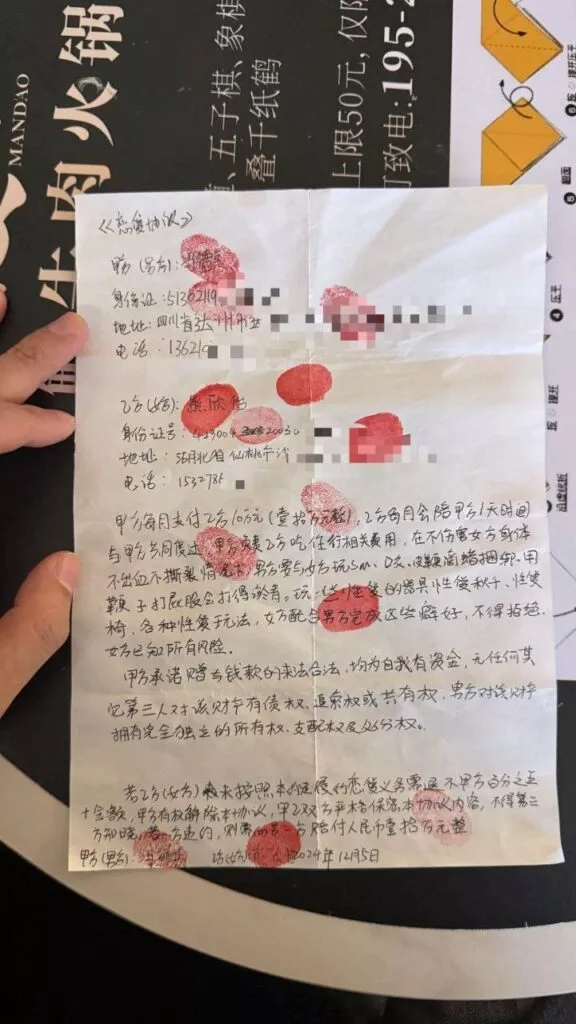 MANDAO
牛肉火锅
五子棋、象棋
叠千纸鹤
上限50元,仅
可致电:195-2
压平
《恋爱协议》
甲方(男方):
身份证:51302119
地址:四川省达州市
电话:13621
乙方(女方):欣怡
身份证号:429004 2003
地址:湖北省仙桃市沙
电话:15327
甲方每月支付乙方10万元(壹拾万元整),乙方每月会陪甲方1天时间
与甲方共同度过,甲方负责乙方吃住行相关费用,在不伤害女方身体
不出血不撕裂情况下,男方要与女方玩sm、皮鞭滴蜡捆绑,用
鞭子打屁股会打得淤青。玩一些性爱的器具性爱秋千、性爱
椅、各种性爱玩法,女方配合男方完成这些癖好,不得拒绝,
女方已知所有风险。
甲方承诺赠与钱款的来法合法,均为自我有资金,无任何其
它第三人对该财产有债权、追索权或共有权,男方对该财产
拥有完全独立的所有权、支配权及处分权。
若乙方(女方)未按照本约定履行恋爱义务需退还甲方百分之五
十金额,甲方有权解除本协议,甲乙双方严格保密本协议内容,不得第三
方知晓,若一方违约,则需向另一方赔付人民币壹拾万元整
甲方(男方): 乙方(女方): 2024年12月5日